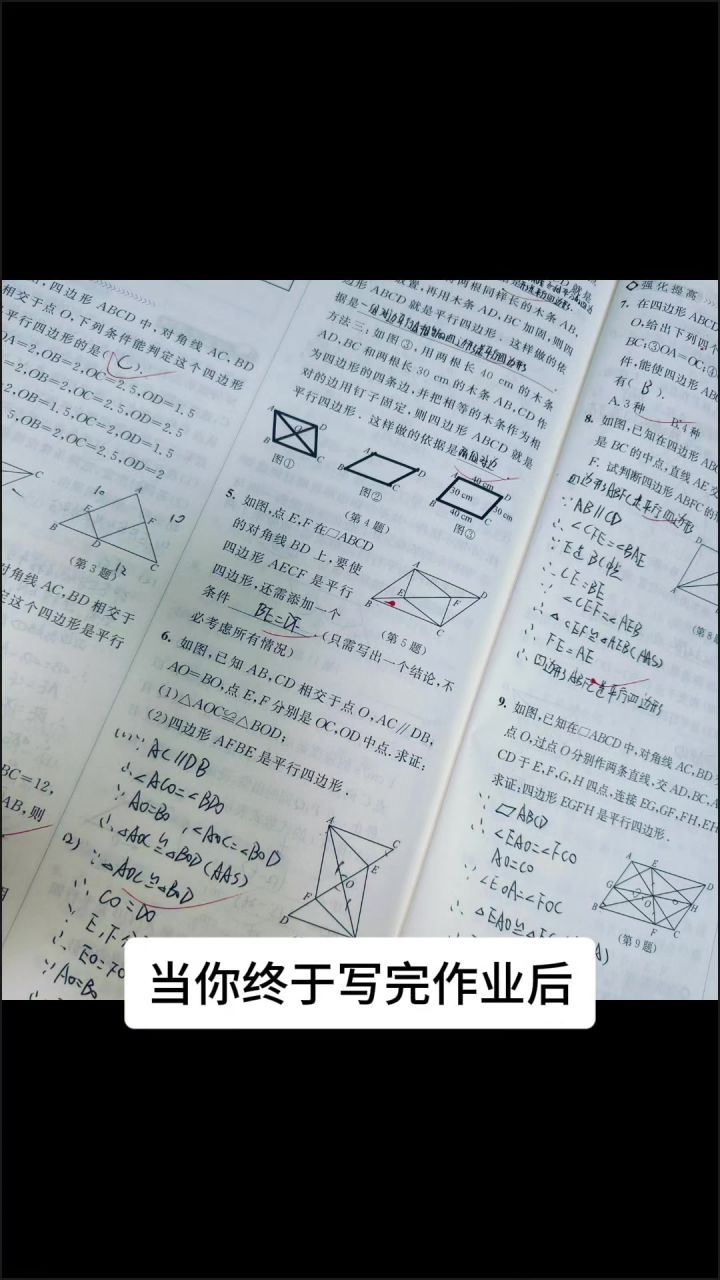 ，四边形 ABCD 中，对角线 AC，BD
相交于点 O，下列条件能判定这个四边形
平行四边形的是( C ).
OA=2，OB=2，OC=2.5，OD=1.5
=2，OB=2，OC=2.5，OD=2.5
=2，OB=1.5，OC=2，OD=1.5
5，OB=2，OC=2.5，OD=2
(第3题)
对角线 AC，BD 相交于
定这个四边形是平行
BC=12，
AB，则
两根同样长的木条 AB，
放置，再用木条 AD，BC 加固，则四
边形 ABCD 就是平行四边形．这样做的依
据是
方法三：如图③，用两根长 40 cm 的木条
AD，BC 和两根长 30 cm 的木条 AB，CD 作
为四边形的四条边，并把相等的木条作为相
对的边用钉子固定，则四边形 ABCD 就是
平行四边形．这样做的依据是
图①
图②
40 cm
30 cm
30 cm
40 cm
图③
(第4题)
5. 如图，点 E，F 在□ABCD
的对角线 BD 上，要使
四边形 AECF 是平行
四边形，还需添加一个
条件 BE=DF ．(只需写出一个结论，不
必考虑所有情况)
(第5题)
6. 如图，已知 AB，CD 相交于点 O，AC∥DB，
AO=BO，点 E，F 分别是 OC，OD 中点．求证：
(1)△AOC≌△BOD；
(2)四边形 AFBE 是平行四边形．
(1)∵AC∥DB
∴∠ACO=∠BDO
∵AO=BO，∠AOC=∠BOD
∴△AOC≌△BOD(AAS)
(2)∵△AOC≌△BOD
∴CO=DO
E，F
∴EO=FO
∵AO=BO
强化提高
7. 在四边形 ABCD
O，给出下列四个
BC；③OA=OC；④
件，能使四边形 ABC
有( B ).
A. 3种 B. 4种
8. 如图，已知在四边形 AB
是 BC 的中点，直线 AE 交
F. 试判断四边形 ABFC 的
四边形ABFC是平行四边形
∵AB∥CD
∴∠CFE=∠BAE
∵E是BC中点
∴CE=BE
∵∠CEF=∠AEB
∴△CEF≌△AEB(AAS)
∴FE=AE
∴四边形ABFC是平行四边形
(第8题
9. 如图，已知在□ABCD 中，对角线 AC，BD
点 O，过点 O 分别作两条直线，交 AD，BC，A
CD 于 E，F，G，H 四点，连接 EG，GF，FH，EH
求证：四边形 EGFH 是平行四边形．
∵▱ABCD
∴∠EAO=∠FCO
AO=CO
∵∠EOA=∠FOC
∴△EAO≌
(第9题)
当你终于写完作业后